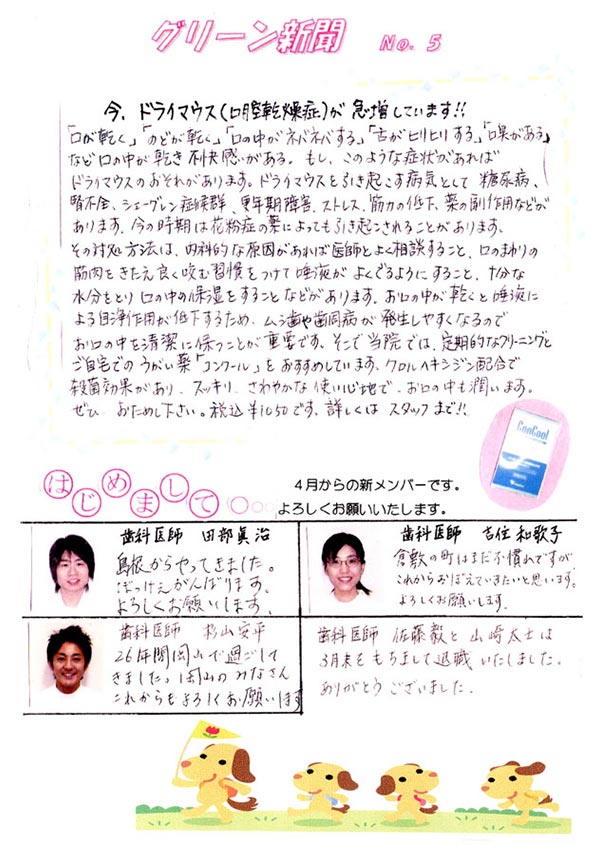 グリーン新聞 No. 5
今、ドライマウス(口腔乾燥症)が急増しています!!
「口が乾く」「のどが乾く」「口の中がネバネバする」「舌がヒリヒリする」「口臭がある」
など口の中が乾き不快感がある。もし、このような症状があれば
ドライマウスのおそれがあります。ドライマウスを引き起こす病気として 糖尿病、
腎不全、シェーグレン症候群、更年期障害、ストレス、筋力の低下、薬の副作用などが
あります。今の時期は花粉症の薬によっても引き起こされることがあります。
その対処方法は、内科的な原因があれば医師とよく相談すること、口のまわりの
筋肉をきたえ良く咬む習慣をつけて唾液がよくでるようにすること、十分な
水分をとり口の中の保湿をすることなどがあります。お口の中が乾くと唾液に
よる自浄作用が低下するため、ムシ歯や歯周病が発生しやすくなるので
お口の中を清潔に保つことが重要です。そこで当院では、定期的なクリーニングと
ご自宅でのうがい薬「コンクール」をおすすめしています。クロルヘキシジン配合で
殺菌効果があり、スッキリ、さわやかな使い心地で、お口の中も潤います。
ぜひ おためし下さい。税込¥1050です。詳しくはスタッフまで!!
ConCool
はじめまして
4月からの新メンバーです。
よろしくお願いいたします。
歯科医師 田部眞治
島根からやってきました。
ぼっけえがんばります。
よろしくお願いします。
歯科医師 吉住和歌子
倉敷の町はまだ不慣れですが、
これからおぼえていきたいと思います。
よろしくお願いします。
歯科医師 杉山安平
26年間岡山で過ごして
きました。岡山のみなさん
これからもよろしくお願いします
歯科医師 佐藤毅と山崎太士は
3月末をもちまして退職いたしました。
ありがとうございました。